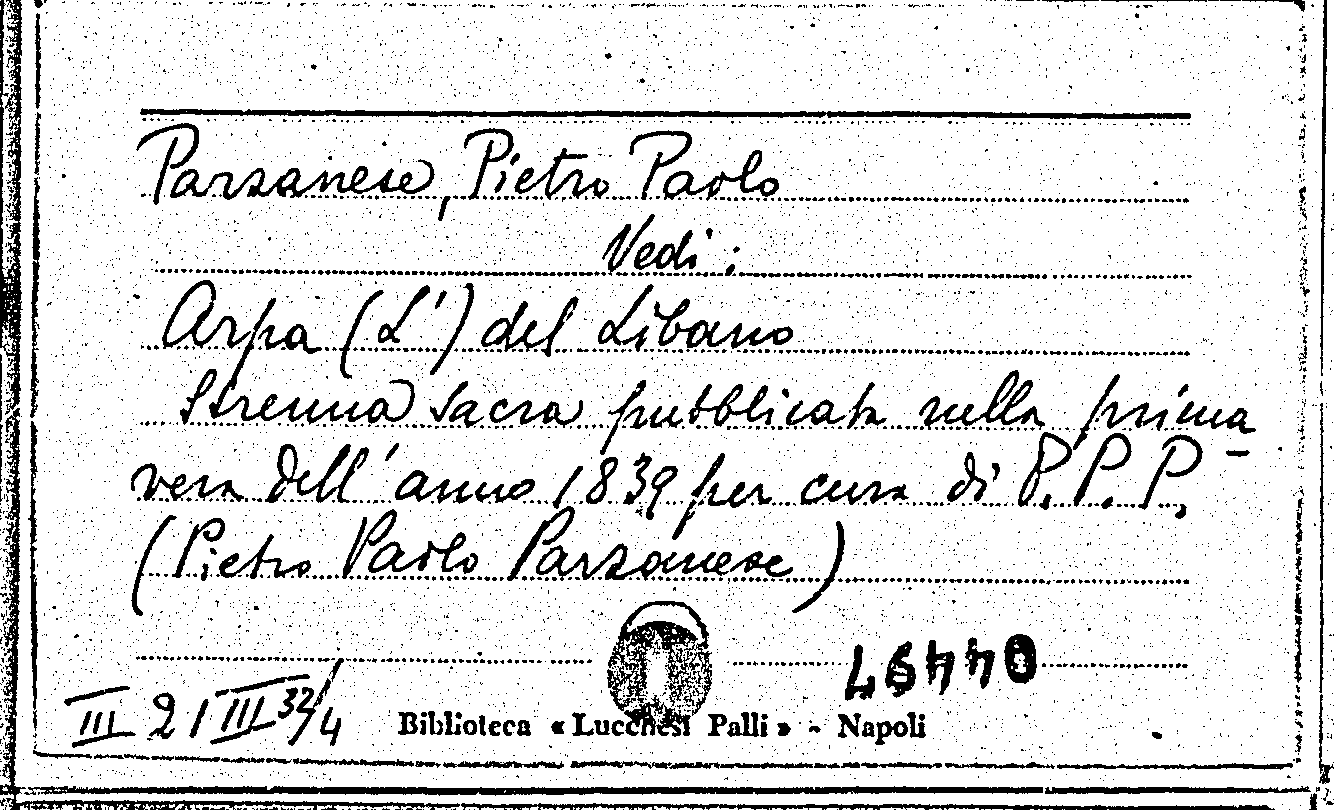 Parzanese, Pietro Paolo
Vedi:
Arpa (L') del Libano
Strenna sacra pubblicata nella prima-
vera dell'anno 1839 per cura di P. P. P.
(Pietro Paolo Parzanese)
III 21 III 32/4
Biblioteca « Lucchesi Palli » - Napoli